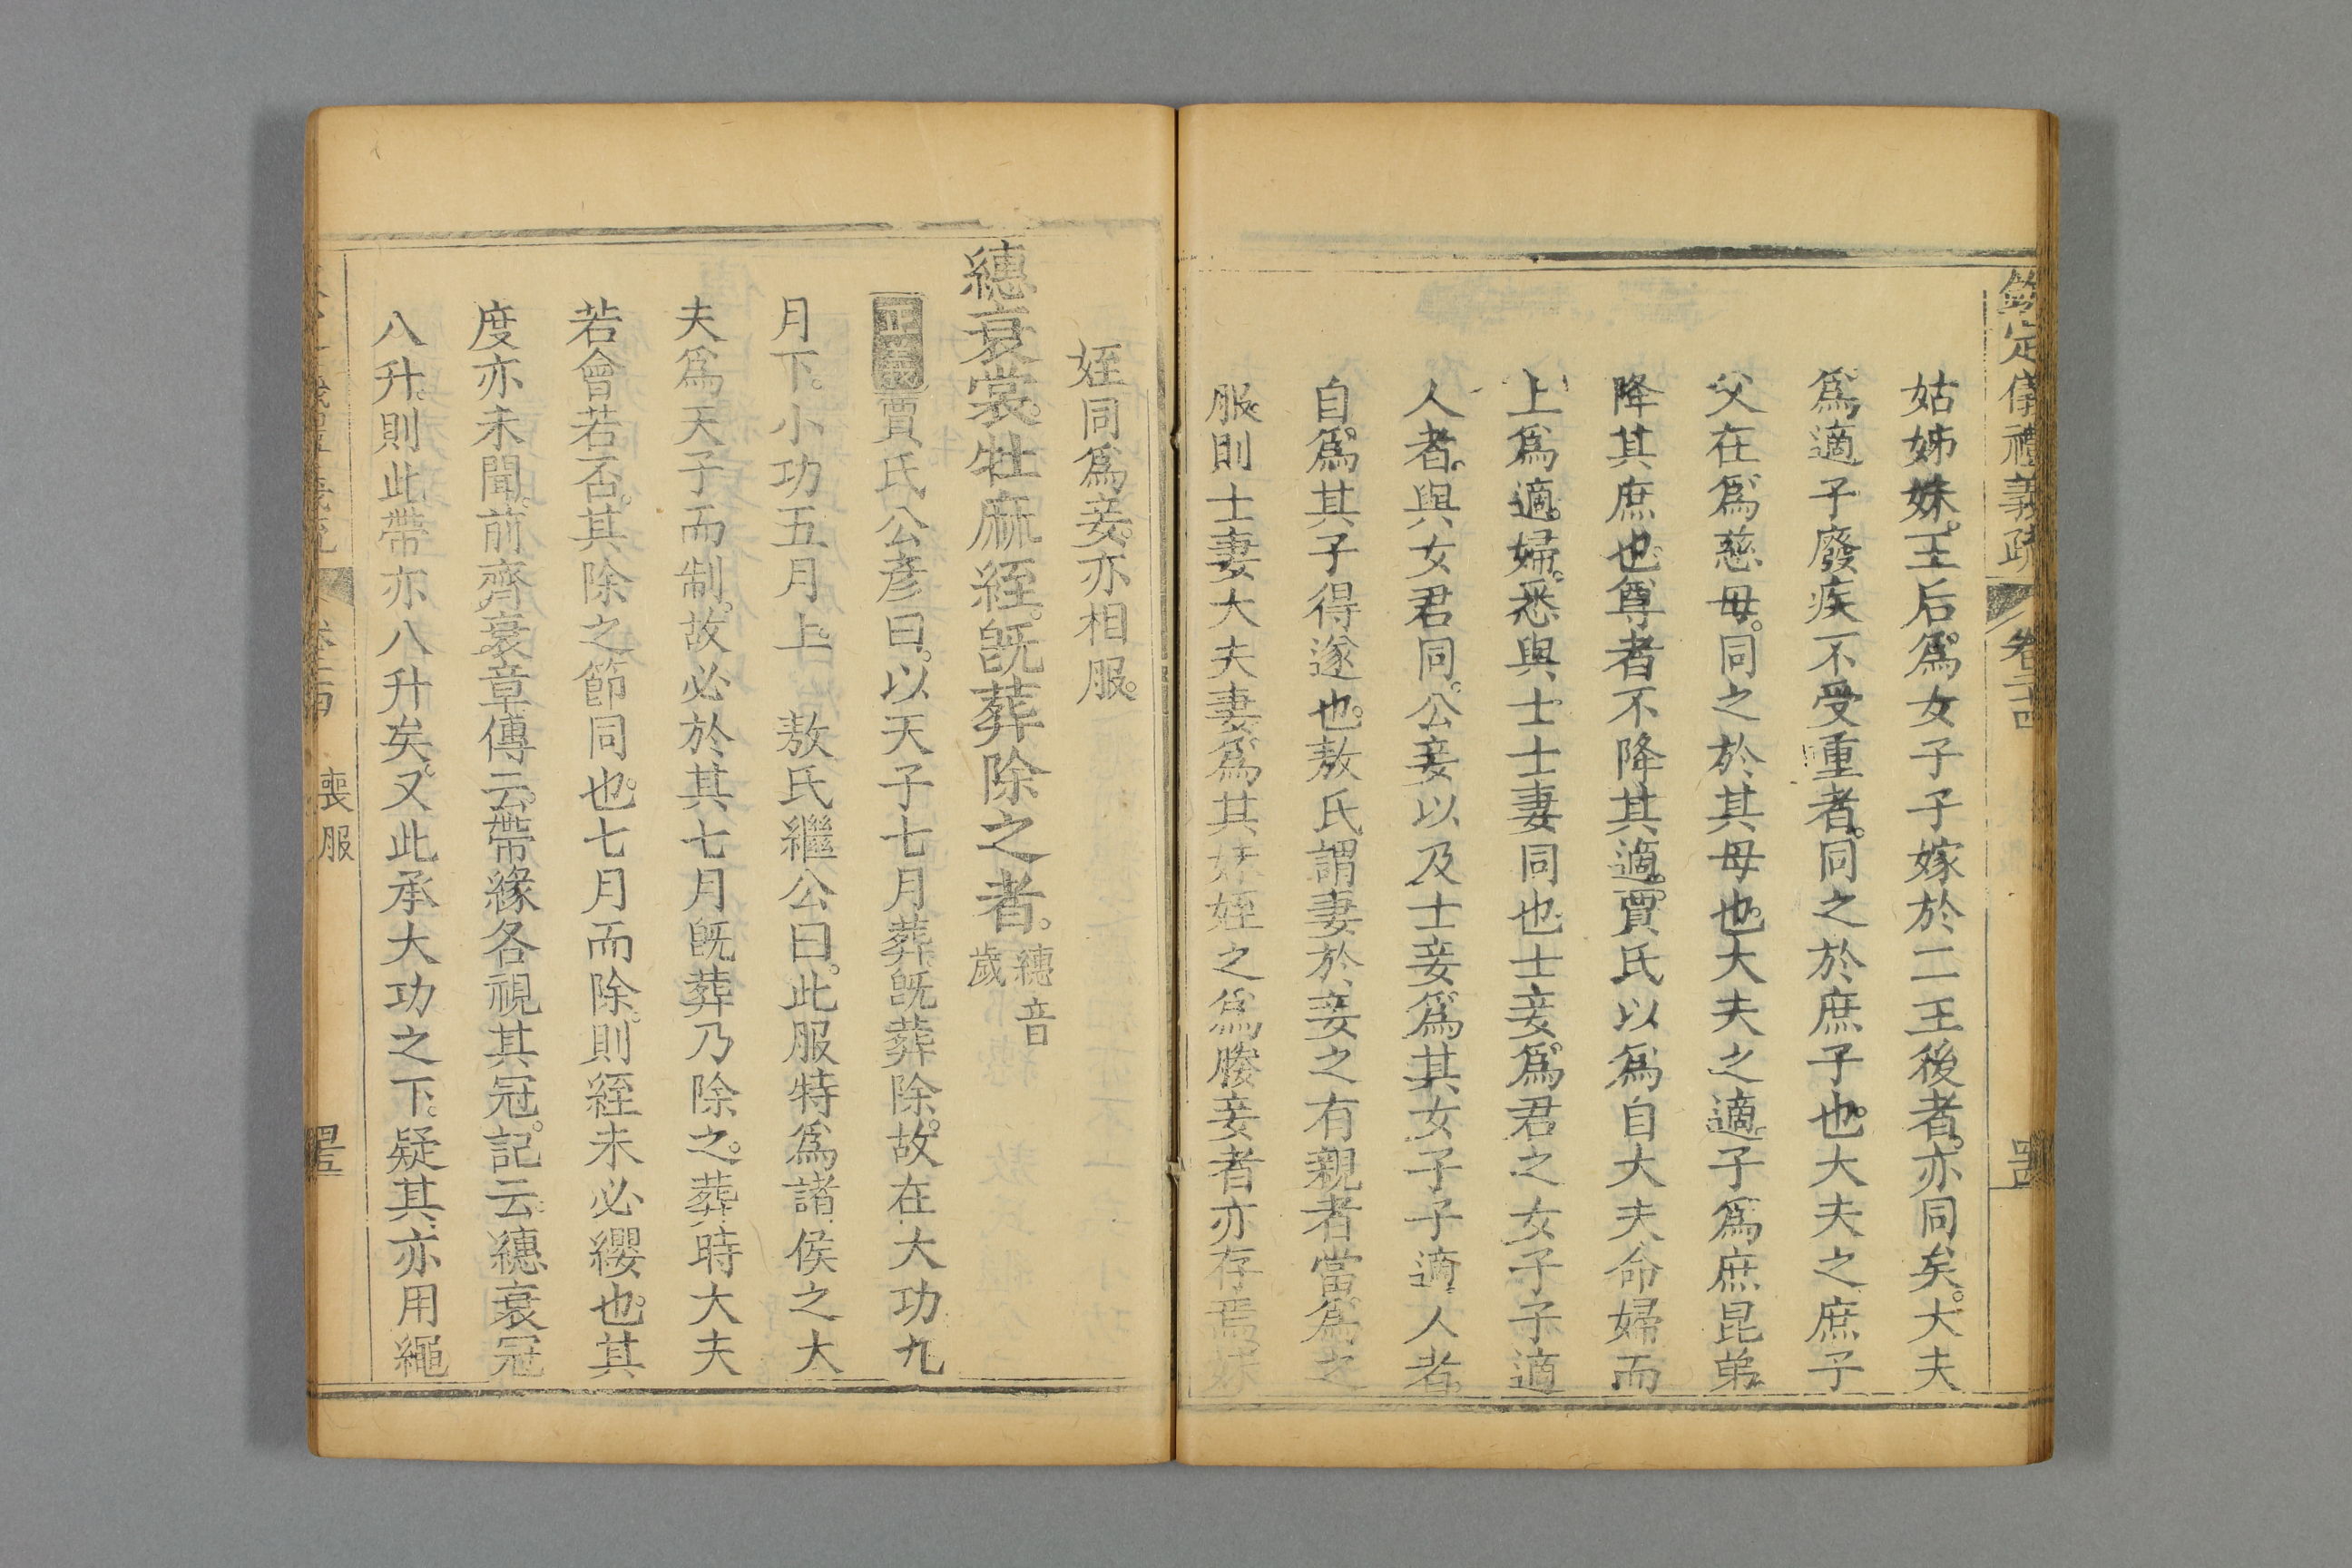 欽定儀禮義疏 卷二十四
姑姊妹王后爲女子子嫁於二王後者亦同矣大夫
爲適子廢疾不受重者同之於庶子也大夫之庶子
父在爲慈母同之於其母也大夫之適子爲庶昆弟
降其庶也尊者不降其適賈氏以爲自大夫命婦而
上爲適婦悉與士士妻同也士妾爲君之女子子適
人者與女君同公妾以及士妾爲其女子子適人者
自爲其子得遂也敖氏謂妻於妾之有親者當爲之
服則士妻大夫妻爲其娣姪之爲媵妾者亦存焉娣
姪同爲妾亦相服
繐衰裳牡麻絰旣葬除之者 繐音
歲
正義 賈氏公彥曰以天子七月葬旣葬除故在大功九
月下小功五月上 敖氏繼公曰此服特爲諸侯之大
夫爲天子而制故必於其七月旣葬乃除之葬時大夫
若會若否其除之節同也七月而除則絰未必纓也其
度亦未聞前齊衰章傳云帶緣各視其冠記云繐衰冠
八升則此帶亦八升矣又此承大功之下疑其亦用繩
喪服